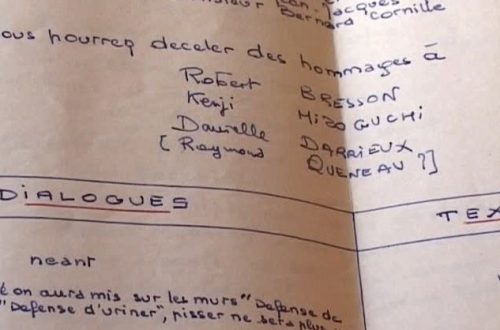 Jacques
Bernard Cornille
ous pourrez deceler des hommages à
Robert BRESSON
Kenji MIZOGUCHI
Danielle DARRIEUX
[Raymond QUENEAU ?]
DIALOGUES
TEX
neant
é on aura mis sur les murs "Defense de
"Defense d'uriner", pisser ne sera plus